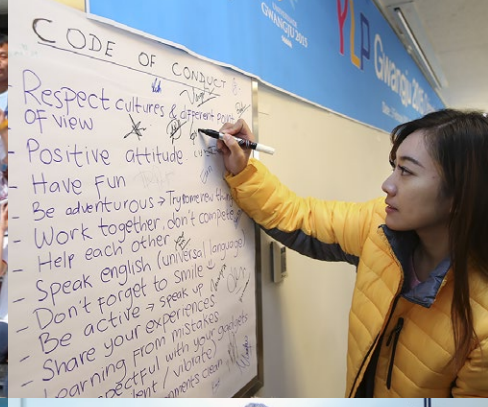 GWANGJU 2015
YLP
Gwangju 2015
CODE OF CONDUCT
Respect cultures & different point
of view
- Positive attitude
- Have Fun
- Be adventurous → Try some new thing
- Work together, don't compete
- Help each other
- Speak english (universal language)
- Don't forget to smile
- Be active → speak up
- Share your experiences
- Learning from mistakes
with your gadgets
/ vibrate)
clean